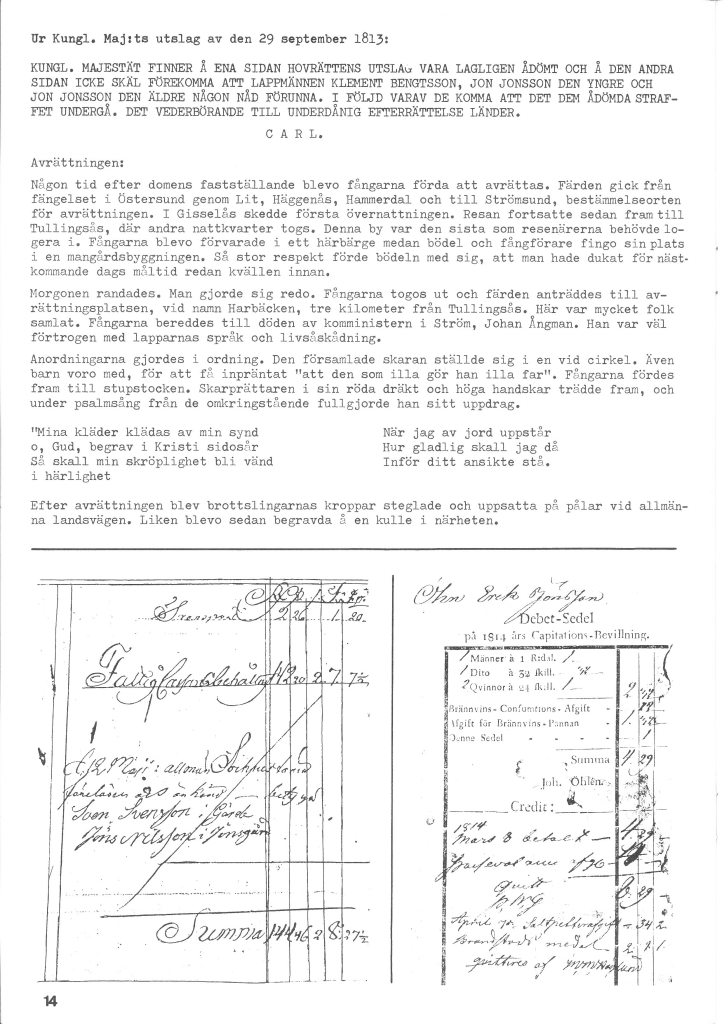 Ur Kungl. Maj:ts utslag av den 29 september 1813:
KUNGL. MAJESTÄT FINNER Å ENA SIDAN HOVRÄTTENS UTSLAG VARA LAGLIGEN ÅDÖMT OCH Å DEN ANDRA
SIDAN ICKE SKÄL FÖREKOMMA ATT LAPPMÄNNEN KLEMENT BENGTSSON, JON JONSSON DEN YNGRE OCH
JON JONSSON DEN ÄLDRE NÅGON NÅD FÖRUNNA. I FÖLJD VARAV DE KOMMA ATT DET DEM ÅDÖMDA STRAF-
FET UNDERGÅ. DET VEDERBÖRANDE TILL UNDERDÅNIG EFTERRÄTTELSE LÄNDER.
C A R L.
Avrättningen:
Någon tid efter domens fastställande blevo fångarna förda att avrättas. Färden gick från
fängelset i Östersund genom Lit, Häggenås, Hammerdal och till Strömsund, bestämmelseorten
för avrättningen. I Gisselås skedde första övernattningen. Resan fortsatte sedan fram till
Tullingsås, där andra nattkvarter togs. Denna by var den sista som resenärerna behövde lo-
gera i. Fångarna blevo förvarade i ett härbärge medan bödel och fångförare fingo sin plats
i en mangårdsbyggningen. Så stor respekt förde bödeln med sig, att man hade dukat för näst-
kommande dags måltid redan kvällen innan.
Morgonen randades. Man gjorde sig redo. Fångarna togos ut och färden anträddes till av-
rättningsplatsen, vid namn Harbäcken, tre kilometer från Tullingsås. Här var mycket folk
samlat. Fångarna bereddes till döden av komministern i Ström, Johan Ångman. Han var väl
förtrogen med lapparnas språk och livsåskådning.
Anordningarna gjordes i ordning. Den församlade skaran ställde sig i en vid cirkel. Även
barn voro med, för att få inpräntat "att den som illa gör han illa far". Fångarna fördes
fram till stupstocken. Skarprättaren i sin röda dräkt och höga handskar trädde fram, och
under psalmsång från de omkringstående fullgjorde han sitt uppdrag.
"Mina kläder klädas av min synd
o, Gud, begrav i Kristi sidosår
Så skall min skröplighet bli vänd
i härlighet
När jag av jord uppstår
Hur gladlig skall jag då
Inför ditt ansikte stå.
Efter avrättningen blev brottslingarnas kroppar steglade och uppsatta på pålar vid allmän-
na landsvägen. Liken blevo sedan begravda å en kulle i närheten.
Transport 2 26 1. 20.
2 7. 7½
Sven Svensson i Gärde
Jöns Nilsson i Jonsgård
Summa 144 46 2 8. 27½
Erck Jönsson
Debet-Sedel
på 1814 års Capitations-Bevillning.
1 Männer à 1 R:dal. 1.
1 Dito à 32 skill.
2 Qvinnor à 24 skill. 1
Brännvins-Consumtions-Afgift
Afgift för Brännvins-Pannan
Denne Sedel 1
Summa 4. 29
Joh. Öhlén.
Credit:
1814
Mars 8 betalt 4. 29
Quitt
8. 29
April
medal
quitteres af
14